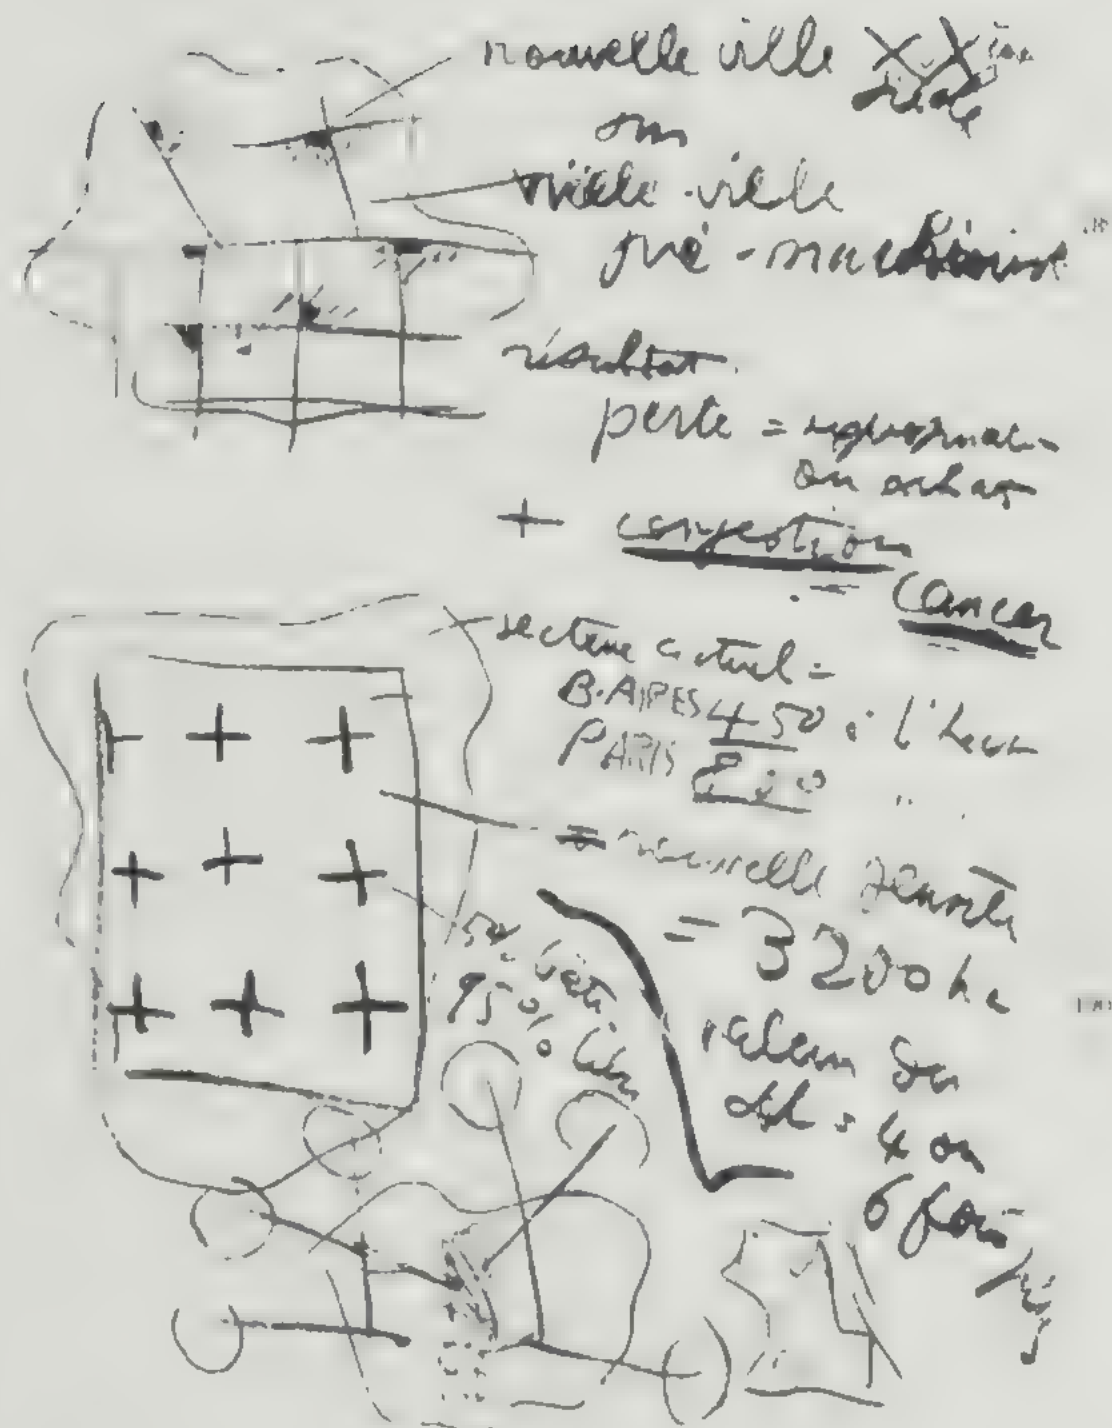 nouvelle ville XXième
siècle
sur
vieille-ville
pré-machiniste
résultat.
perte =
ou achat
+ congestion
= cancer
secteur actuel =
B.AIRES 450 à l'heure
PARIS
= nouvelle densité
= 3200 ha
5% bâti
95% libre
valeur du
sol = 4 ou
6 fois